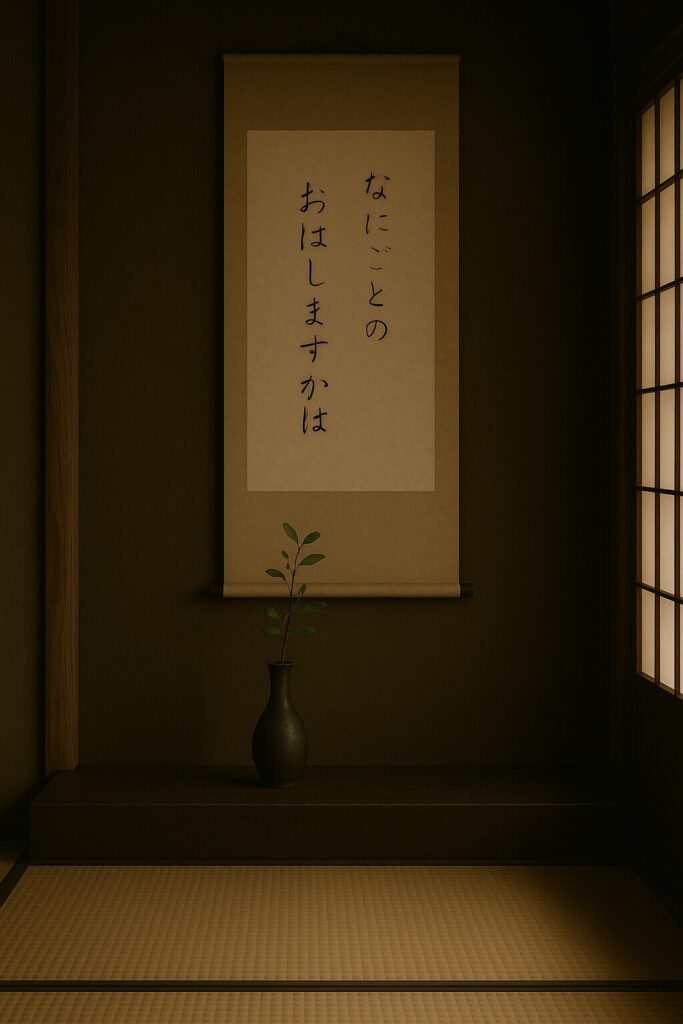 なにごとの
おはしますかは